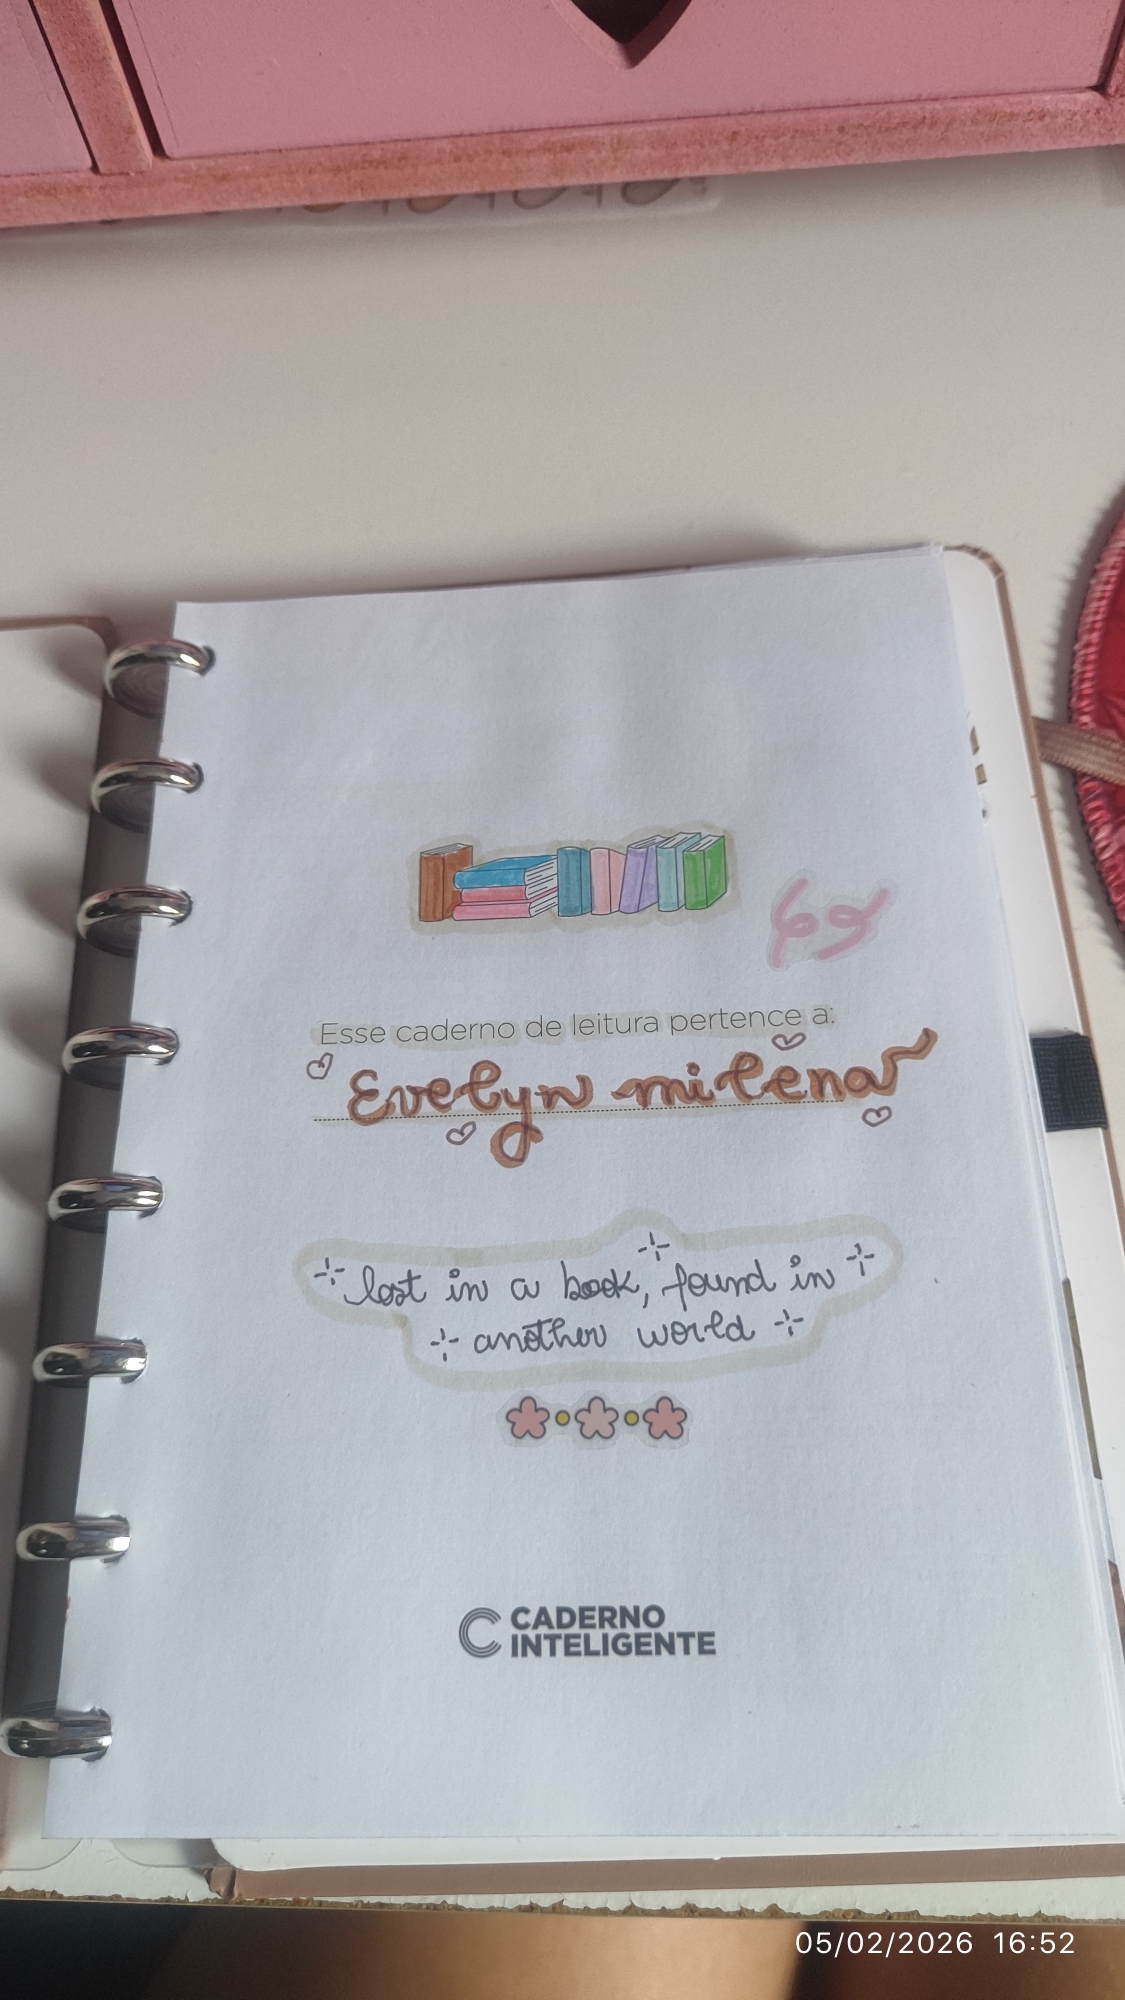 Esse caderno de leitura pertence a:
Evelyn milena
lost in a book, found in
another world
CADERNO
INTELIGENTE
05/02/2026 16:52